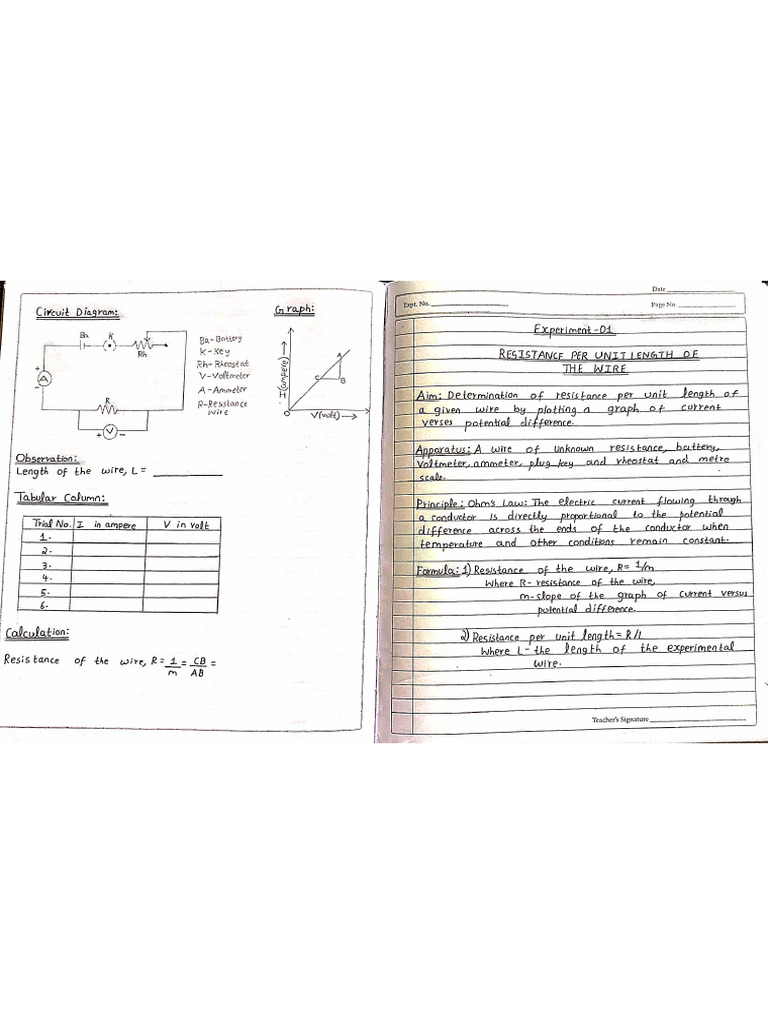 Circuit Diagram:
Ba
K
Rh
A
+
-
R
+ V -
Ba-Battery
K-Key
Rh-Rheostat
V-Voltmeter
A-Ammeter
R-Resistance
wire
Graph:
I (ampere) →
A
B
C
O
V(volt) →
Observation:
Length of the wire, L = ____________
Tabular Column:
Trial No. I in ampere V in volt
1.
2.
3.
4.
5.
6.
Calculation:
Resistance of the wire, R = 1/m = CB/AB =
Date ____________
Expt. No. ____________ Page No. ____________
Experiment-01
RESISTANCE PER UNIT LENGTH OF
THE WIRE
Aim: Determination of resistance per unit length of
a given wire by plotting a graph of current
verses potential difference.
Apparatus: A wire of unknown resistance, battery,
Voltmeter, ammeter, plug key and rheostat and metre
scale.
Principle: Ohm's Law: The electric current flowing through
a conductor is directly proportional to the potential
difference across the ends of the conductor when
temperature and other conditions remain constant.
Formula: 1) Resistance of the wire, R= 1/m
Where R- resistance of the wire,
m-slope of the graph of current versus
potential difference.
2) Resistance per unit length= R/L
Where L- the length of the experimental
wire.
Teacher's Signature ____________